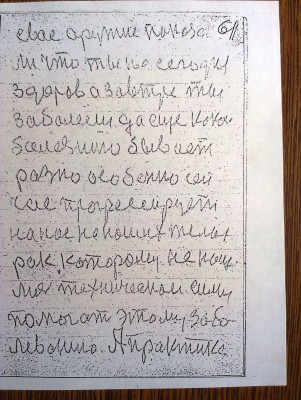 61
евае другие показа
ли что ты на сегодня
здоров а завтра ты
заболееш да еще какой
болезнию бывает
разно особенно сей
час прогрессирует
на нос на наших телах
рак, которому не наш
ма техническая сила
помогат этому забо
леванию. А практика